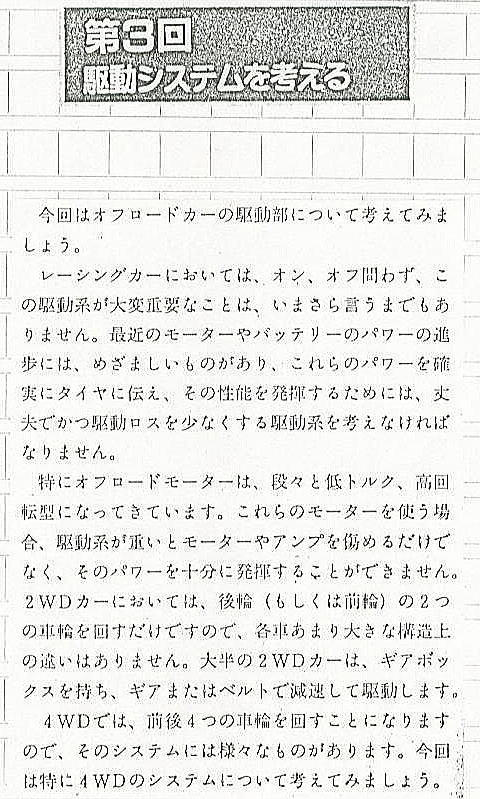 第3回
駆動システムを考える
今回はオフロードカーの駆動部について考えてみま
しょう。
レーシングカーにおいては、オン、オフ問わず、こ
の駆動系が大変重要なことは、いまさら言うまでもあ
りません。最近のモーターやバッテリーのパワーの進
歩には、めざましいものがあり、これらのパワーを確
実にタイヤに伝え、その性能を発揮するためには、丈
夫でかつ駆動ロスを少なくする駆動系を考えなければ
なりません。
特にオフロードモーターは、段々と低トルク、高回
転型になってきています。これらのモーターを使う場
合、駆動系が重いとモーターやアンプを傷めるだけで
なく、そのパワーを十分に発揮することができません。
2WDカーにおいては、後輪（もしくは前輪）の2つ
の車輪を回すだけですので、各車あまり大きな構造上
の違いはありません。大半の2WDカーは、ギアボッ
クスを持ち、ギアまたはベルトで減速して駆動します。
4WDでは、前後4つの車輪を回すことになります
ので、そのシステムには様々なものがあります。今回
は特に4WDのシステムについて考えてみましょう。